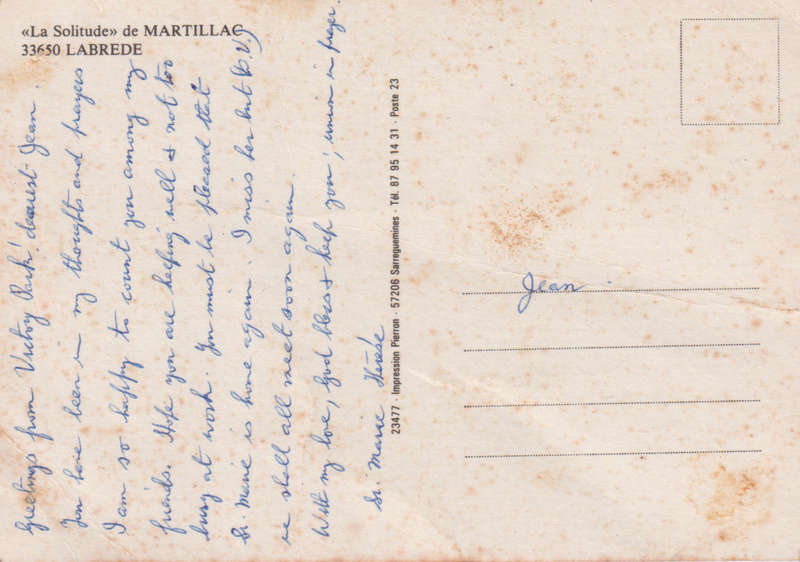 «La Solitude» de MARTILLAC
33650 LABREDE
Greetings from Victory Park! dearest Jean.
You have been in my thoughts and prayers
I am so happy to count you among my
friends. Hope you are keeping well & not too
busy at work. You must be pleased that
Sr. Marie is home again. I miss her but
we shall all meet soon again.
With my love, God bless & keep you, union in prayer.
Sr. Marie
23477 - Impression Pierron - 57206 Sarreguemines - Tél. 87 95 14 31 - Poste 23
Jean.